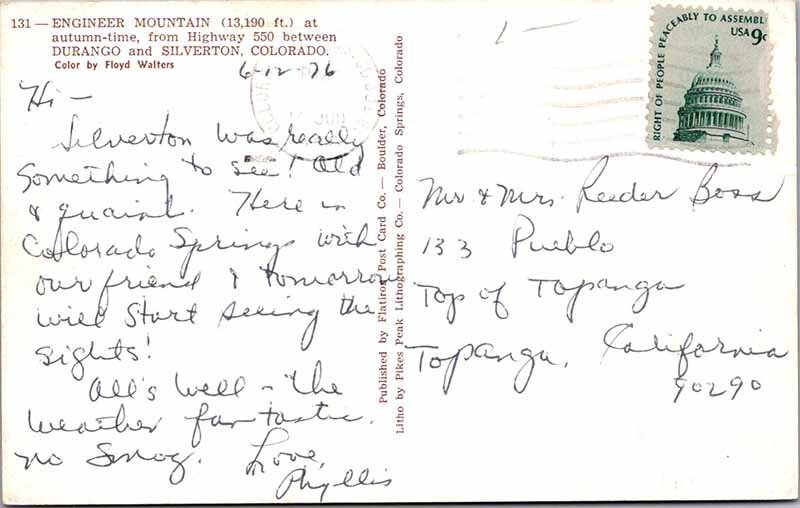 131 — ENGINEER MOUNTAIN (13,190 ft.) at
autumn-time, from Highway 550 between
DURANGO and SILVERTON, COLORADO.
Color by Floyd Walters
6-12-76
Hi —
Silverton was really
something to see! Old
& quaint. Here in
Colorado Springs with
our friend & tomorrow
will start seeing the
sights!
All's well – the
weather fantastic.
no smog. Love,
Phyllis
Published by Flatiron Post Card Co. — Boulder, Colorado
Litho by Pikes Peak Lithographing Co. — Colorado Springs, Colorado
RIGHT OF PEOPLE PEACEABLY TO ASSEMBL
USA 9c
Mr & Mrs. Reeder Boss
133 Pueblo
Top of Topanga
Topanga, California
90290